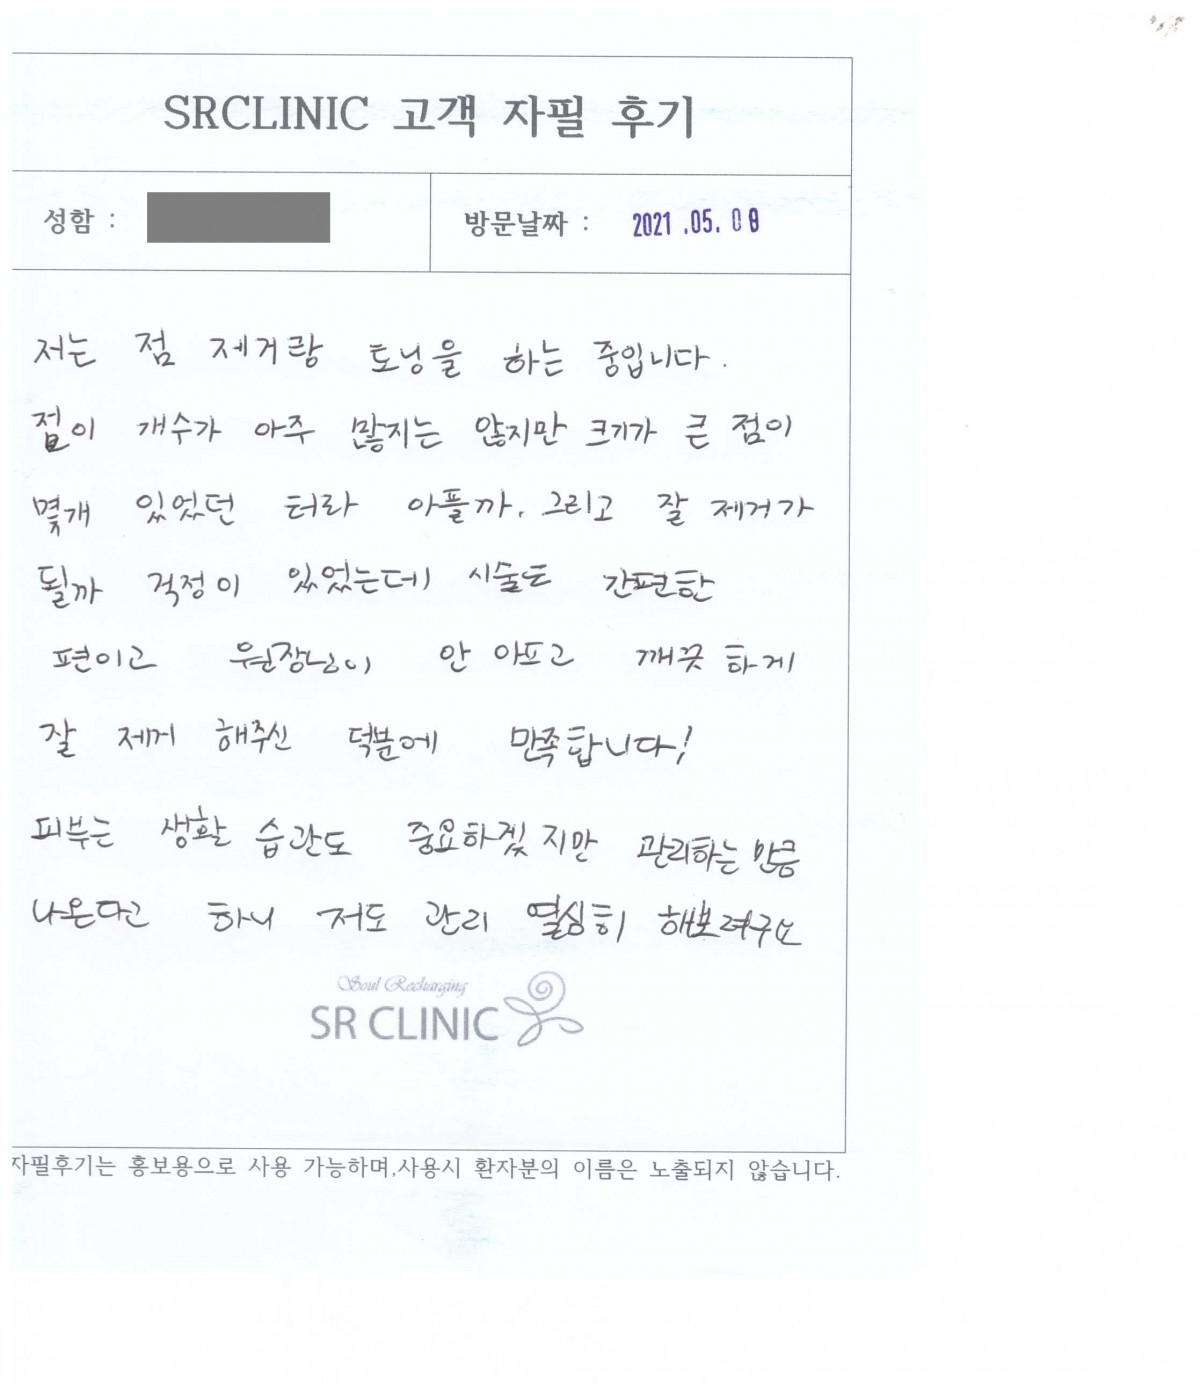 SRCLINIC 고객 자필 후기
성함 :
방문날짜 : 2021 .05. 08
저는 점 제거랑 토닝을 하는 중입니다.
점이 개수가 아주 많지는 않지만 크기가 큰 점이
몇개 있었던 터라 아플까, 그리고 잘 제거가
될까 걱정이 있었는데 시술도 간편한
편이고 원장님이 안 아프고 깨끗하게
잘 제거 해주신 덕분에 만족합니다!
피부는 생활 습관도 중요하겠지만 관리하는 만큼
나온다고 하니 저도 관리 열심히 해보려구요
Soul Recharging
SR CLINIC
자필후기는 홍보용으로 사용 가능하며,사용시 환자분의 이름은 노출되지 않습니다.